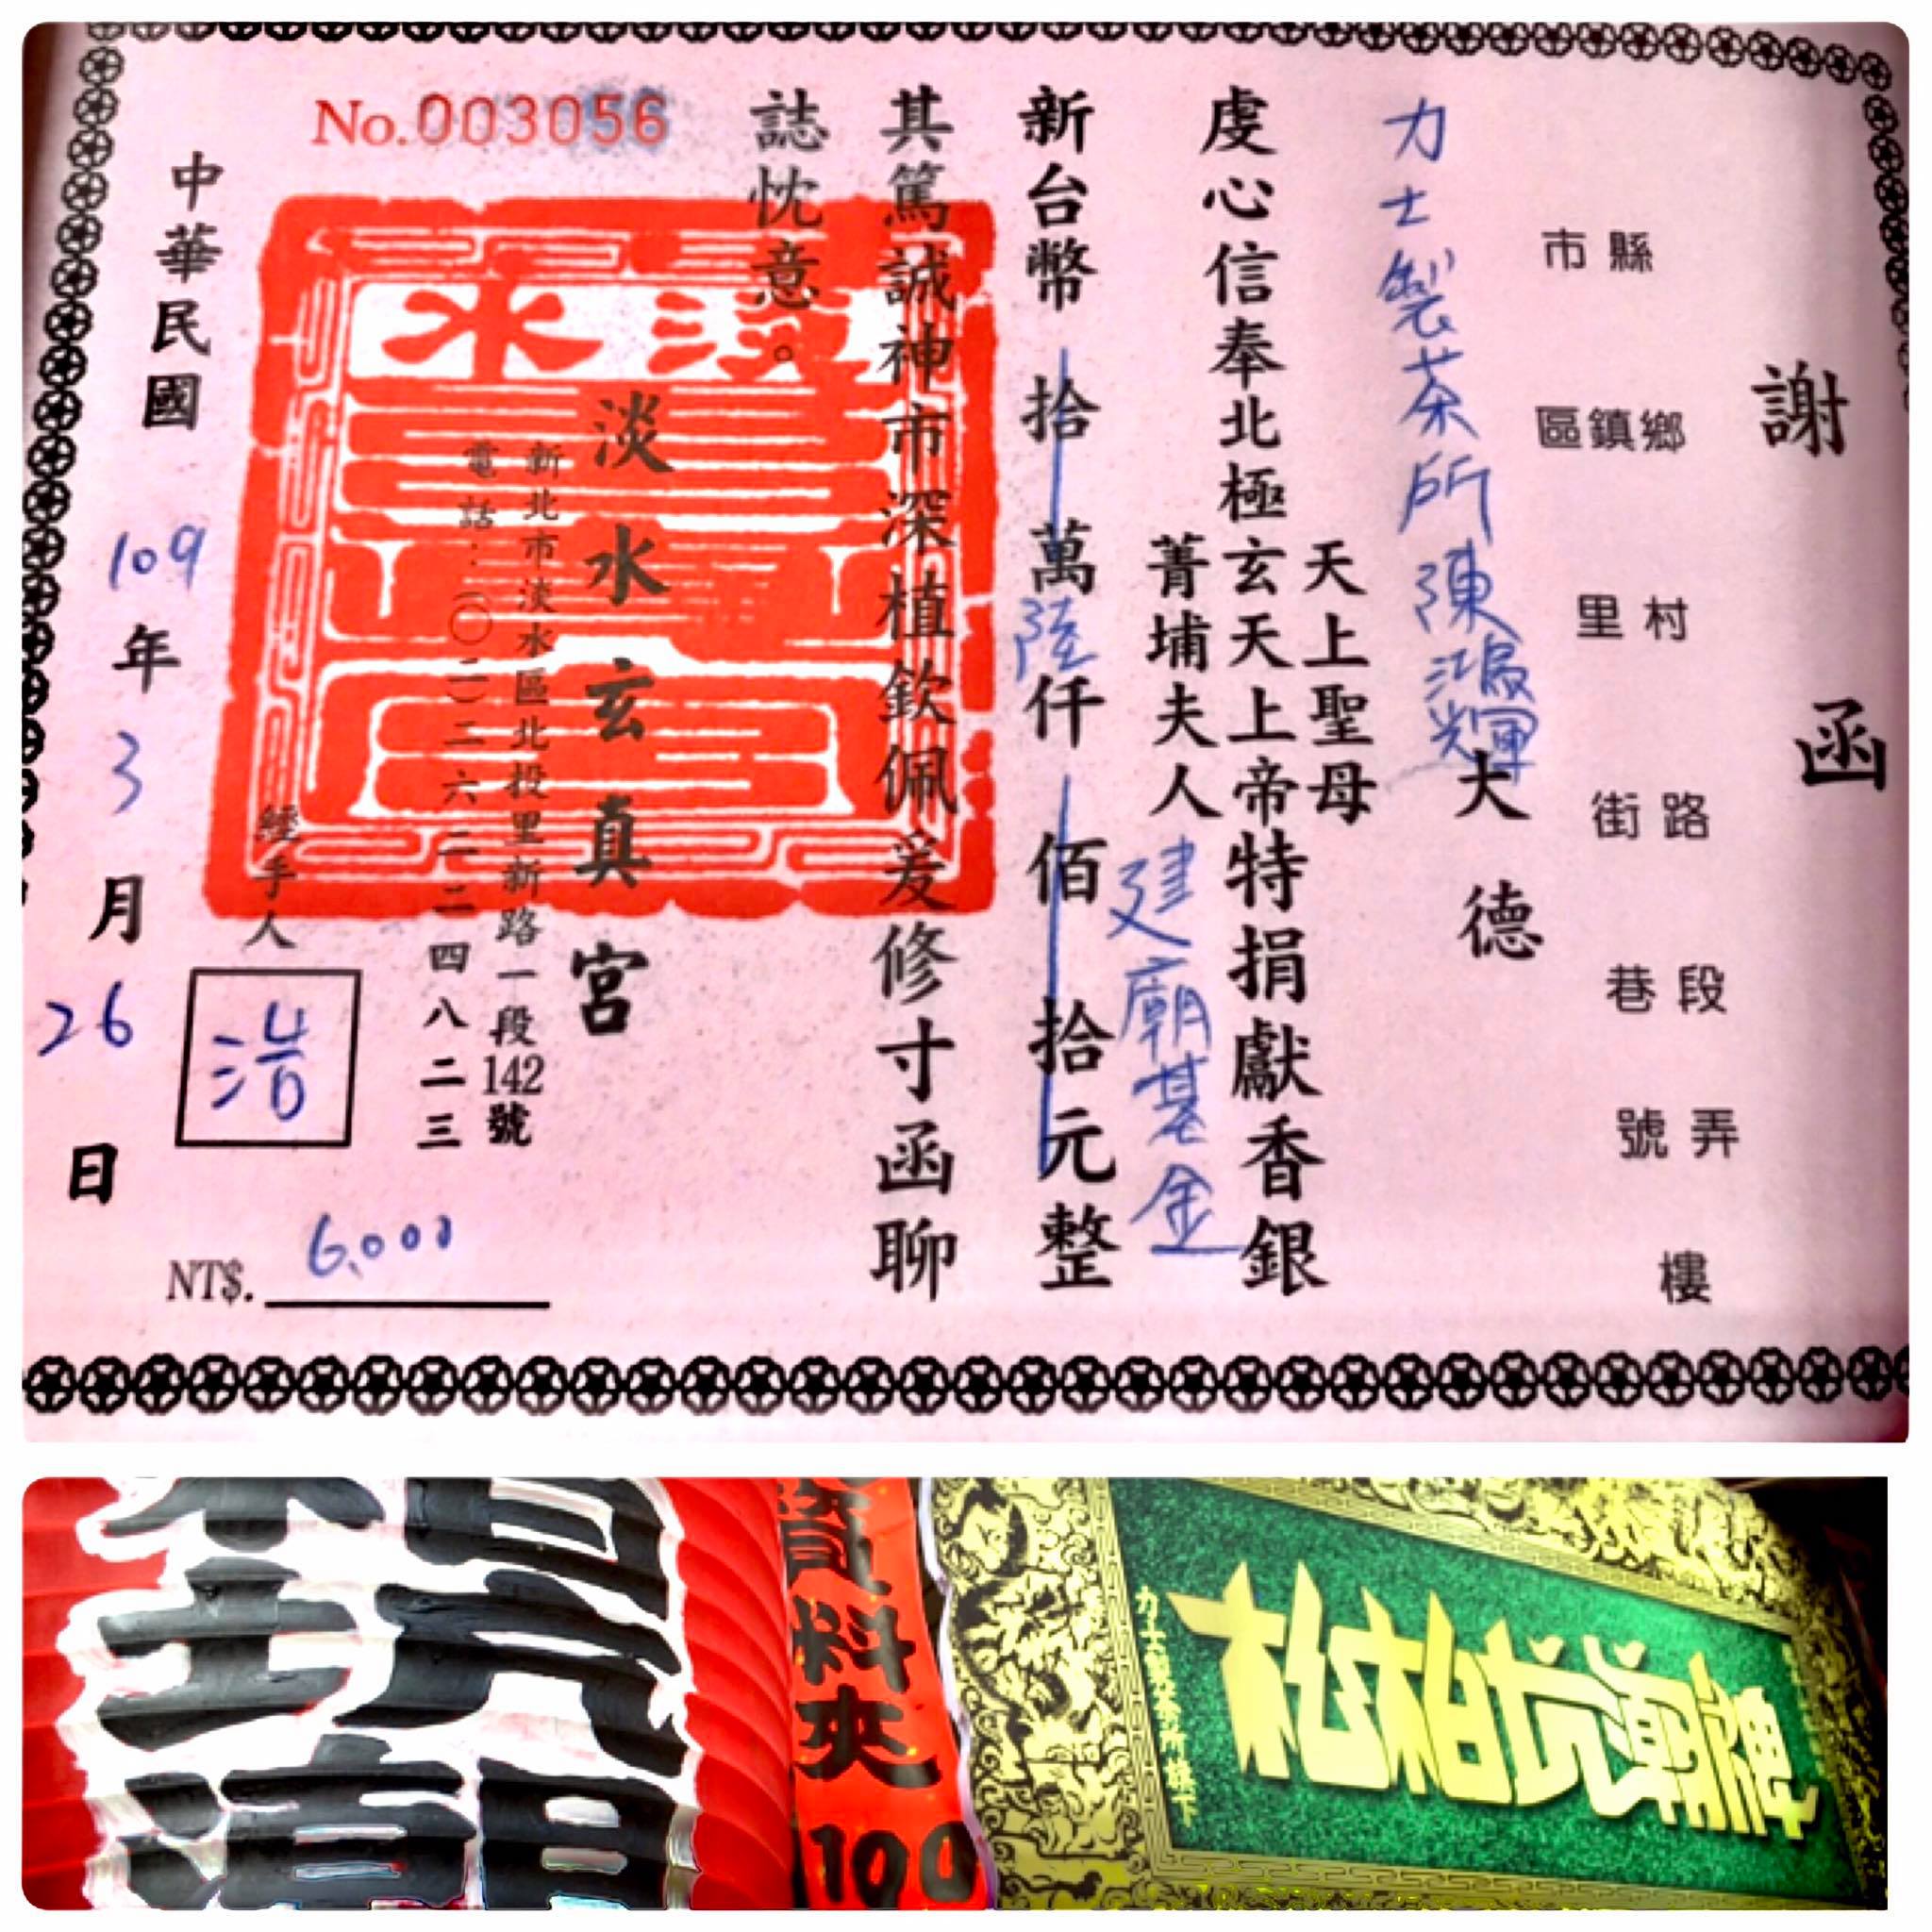 謝函
縣市
鄉鎮區
村里
路街
段巷
弄號
樓
力士製茶所陳鴻輝大德
天上聖母
虔心信奉北極玄天上帝特捐獻香銀
菁埔夫人
建廟基金
新台幣拾萬陸仟佰拾元整
其篤誠神市深植欽佩爰修寸函聊
誌忱意。
No.003056
淡水
淡水玄真宮
新北市淡水區北投里新路一段142號
電話:(〇二)二六二二四八二三
經手人
浩
NT$. 6,000
中華民國109年3月26日
資料夾100
力士製茶所